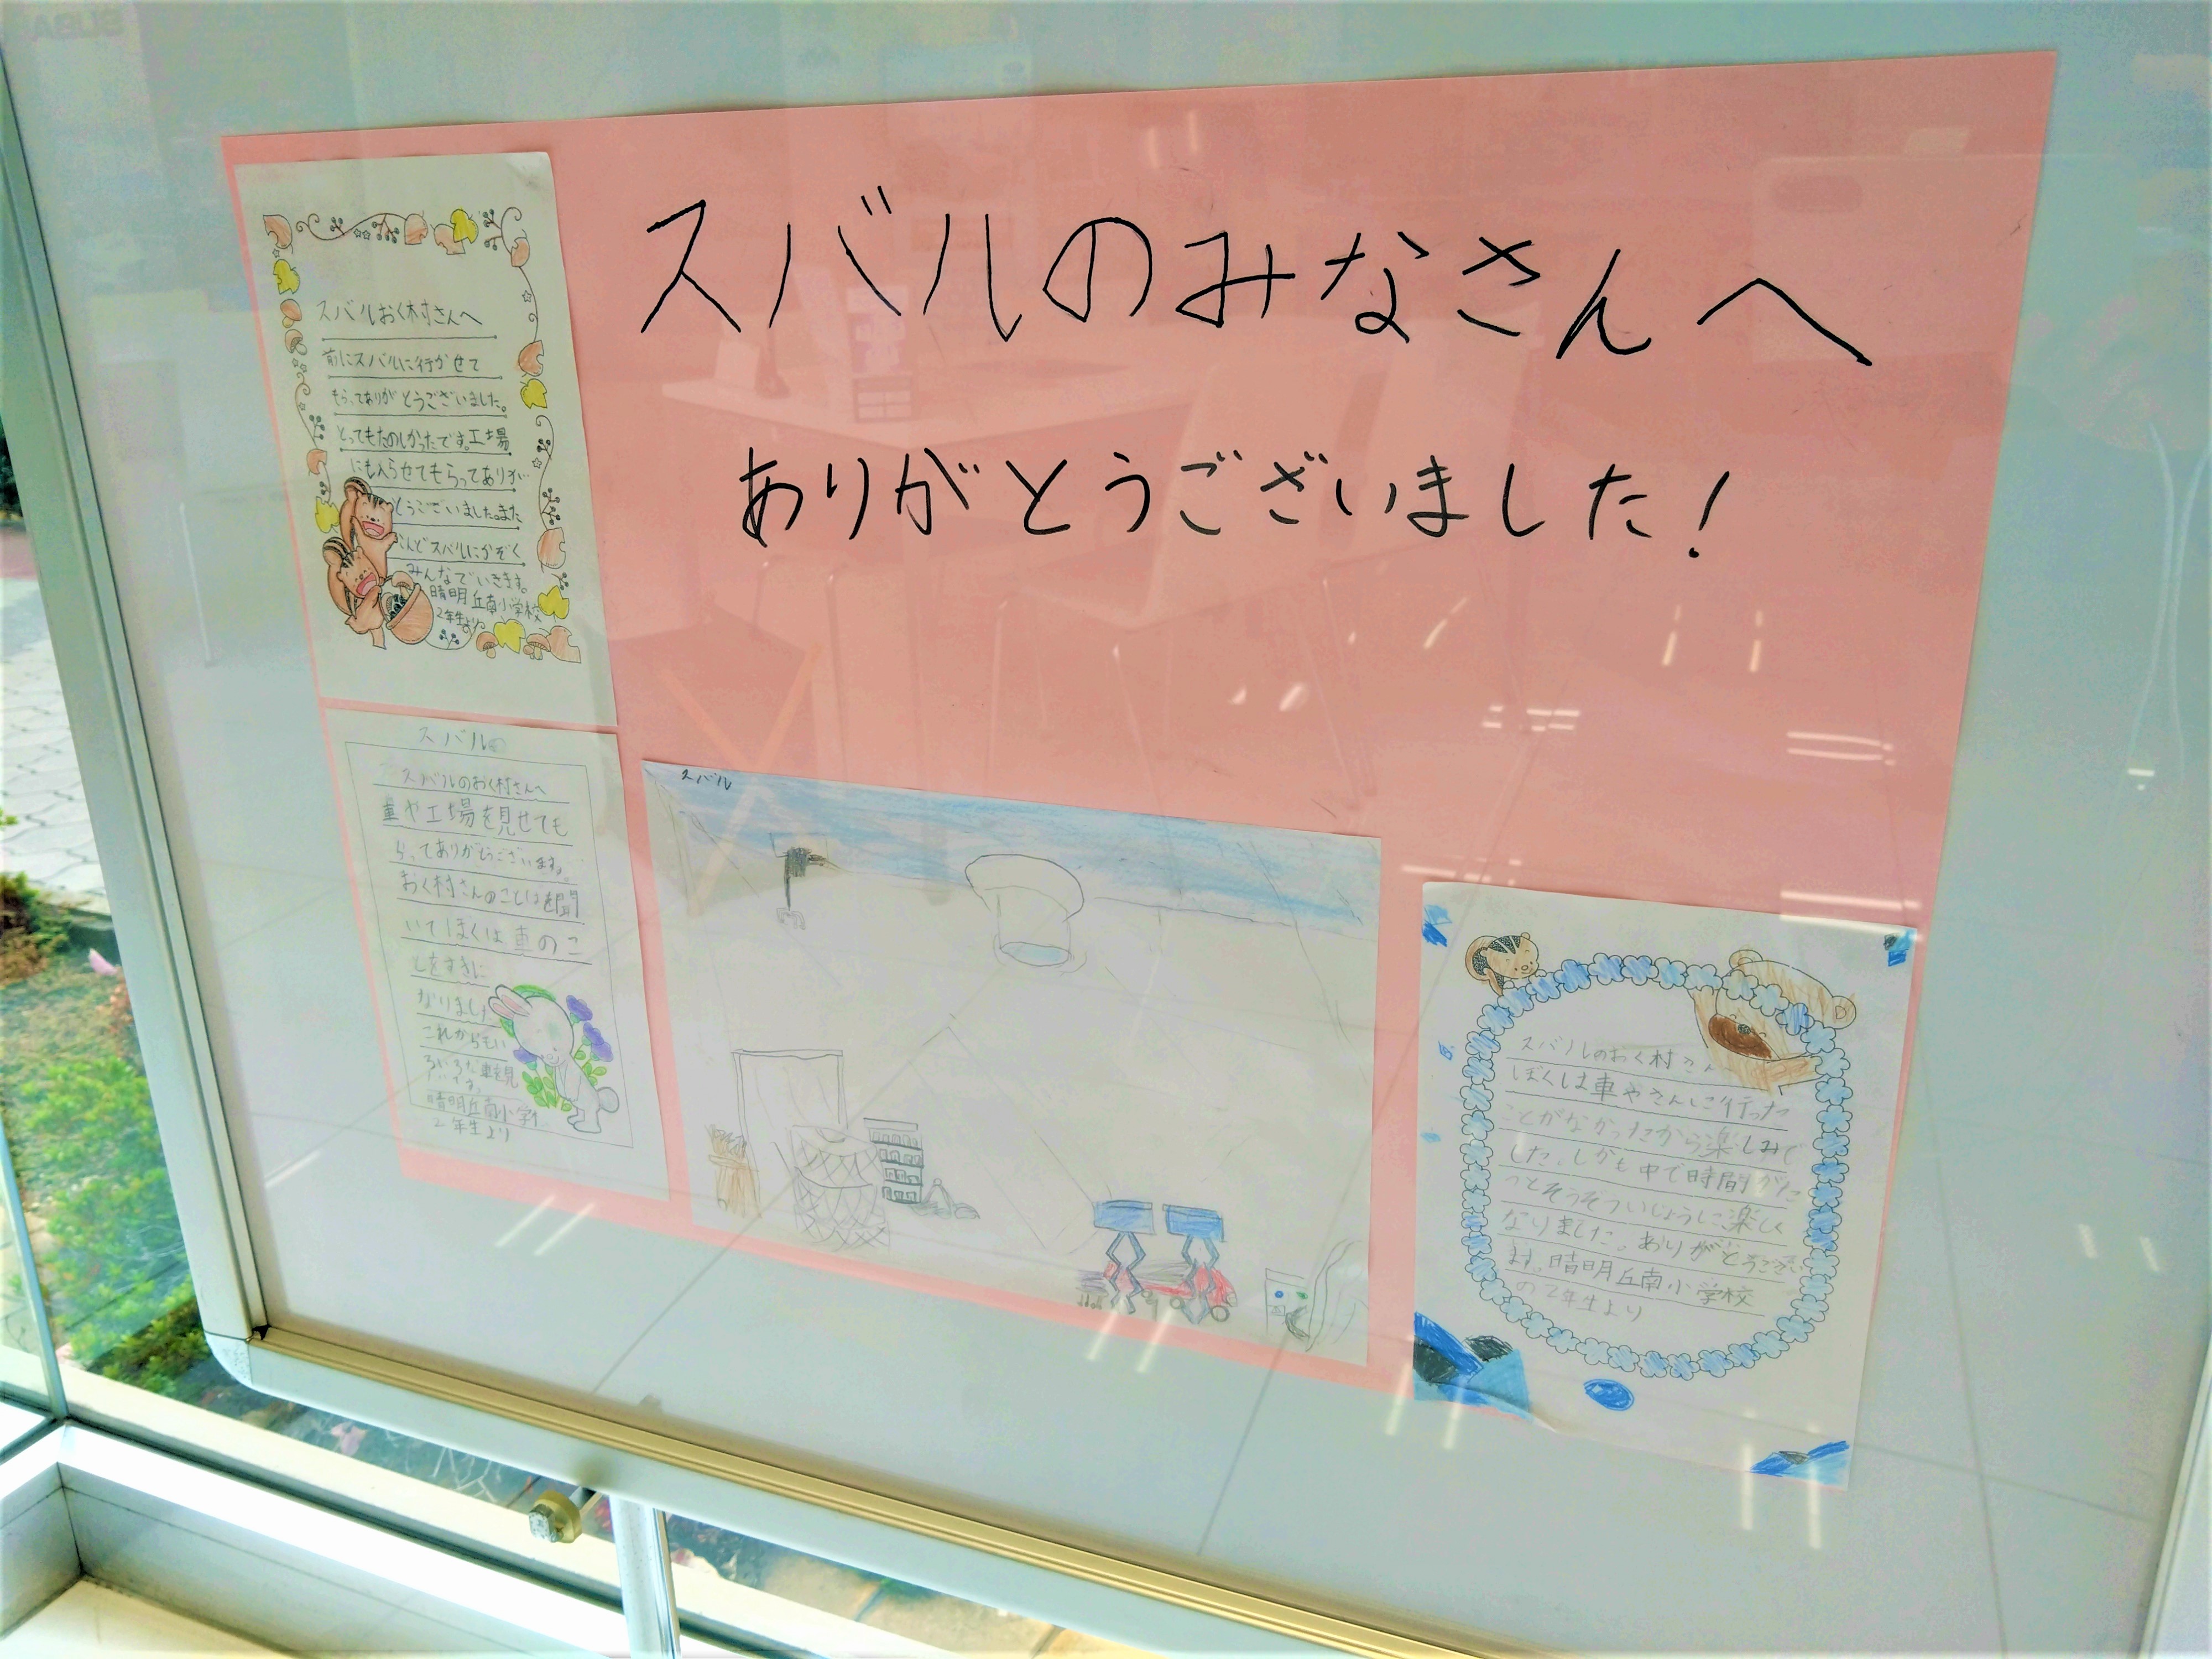 スバルのみなさんへ
ありがとうございました！
スバルおく村さんへ
前にスバルに行かせて
もらってありがとうございました。
とってもたのしかったです。工場
にも入らせてもらってありが
とうございました。また
こんどスバルにかぞく
みんなでいきます。
晴明丘南小学校
2年生より
スバルの
スバルのおく村さんへ
車や工場を見せても
らってありがとうございます。
おく村さんのことばを聞
いてぼくは車のこ
とをすきに
なりました
これからもい
ろいろな車を見
たいです。
晴明丘南小学校
2年生より
スバル
スバルのおく村さんへ
ぼくは車やさんに行った
ことがなかったから楽しみで
した。しかも中で時間がた
つとそうぞういじょうに楽しく
なりました。ありがとうござい
ます。晴明丘南小学校
の2年生より